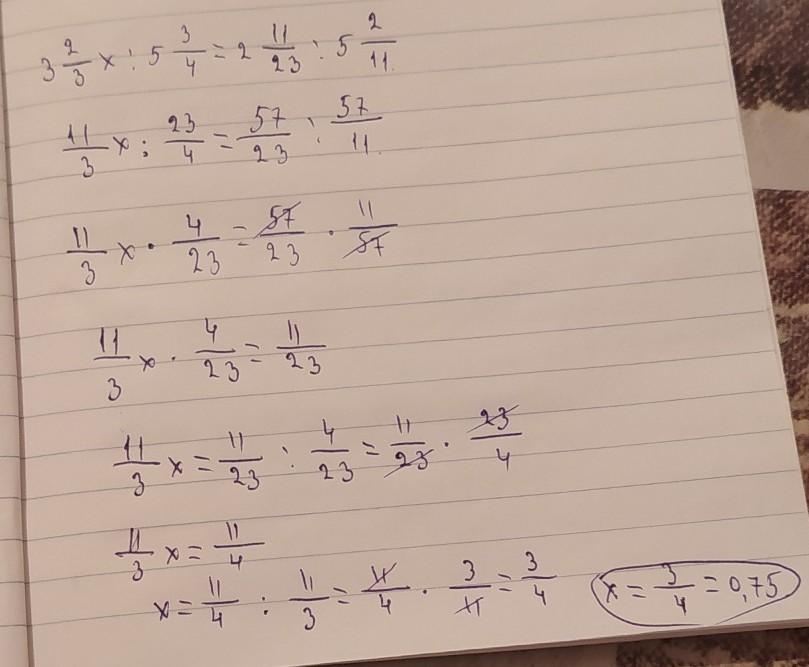 3 2/3 x : 5 3/4 = 2 11/23 : 5 2/11
11/3 x : 23/4 = 57/23 : 57/11
11/3 x · 4/23 = 57/23 · 11/57
11/3 x · 4/23 = 11/23
11/3 x = 11/23 : 4/23 = 11/23 · 23/4
11/3 x = 11/4
x = 11/4 : 11/3 = 11/4 · 3/11 = 3/4 x = 3/4 = 0,75